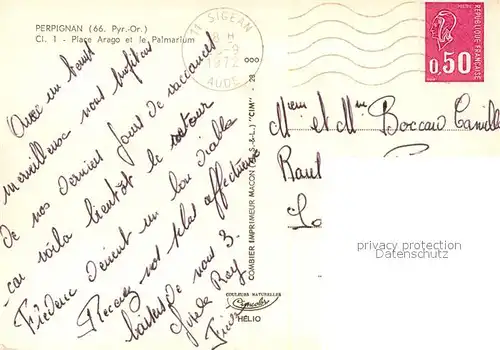 PERPIGNAN (66. Pyr.-Or.)
Cl. 1 - Place Arago et le Palmarium
11 SIGEAN
8 H
-9
1972
AUDE
POSTES
RÉPUBLIQUE FRANÇAISE
0,50
Avec un temps
merveilleux nous profitons
de nos derniers jours de vacances
car voilà bientôt le retour
Frédéric devient un bon diable
Recevez nos plus affectueux
baisers de nous 3.
Gisèle Rey
COMBIER IMPRIMEUR MACON (S.-&-L.) "CIM" - 28
COULEURS NATURELLES
HÉLIO
Mr et Mme Boccard Camille
privacy protection
www.delcampe.net